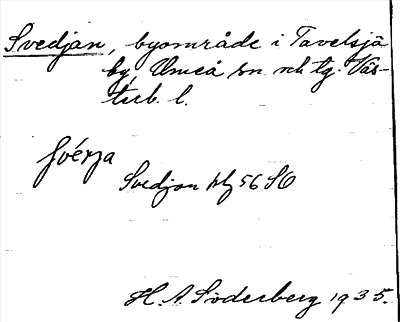 Svedjan, byområde i Tavelsjö
by, Umeå sn. och tg. Väs-
terb. l.
Svedjan blz 56 SO
H. A. Söderberg 1935.